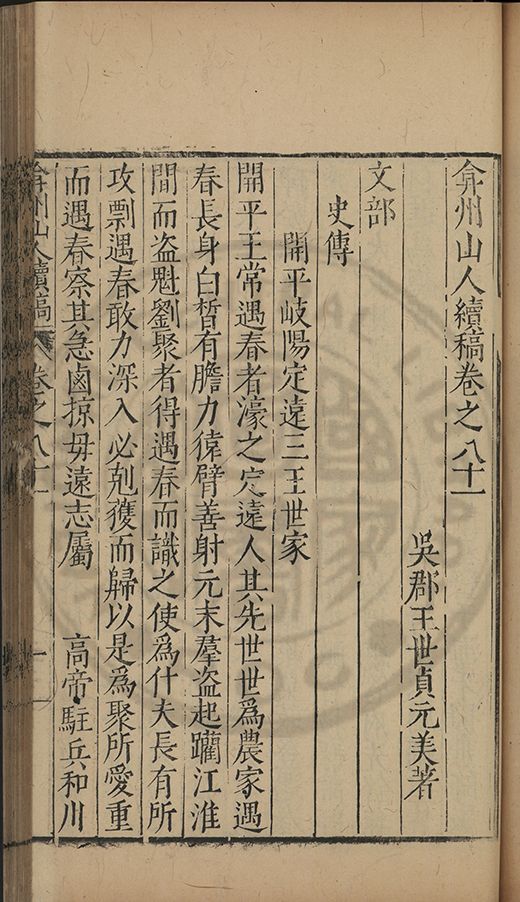 弇州山人續稿卷之八十一
吳郡王世貞元美著
文部
史傳
開平岐陽定遠三王世家
開平王常遇春者濠之定遠人其先世世爲農家遇
春長身白皙有膽力猿臂善射元末羣盜起躪江淮
間而盜魁劉聚者得遇春而識之使爲什夫長有所
攻剽遇春敢力深入必剋獲而歸以是爲聚所愛重
而遇春察其急鹵掠毋遠志屬 高帝駐兵和川
弇州山人續稿 卷之八十一 一